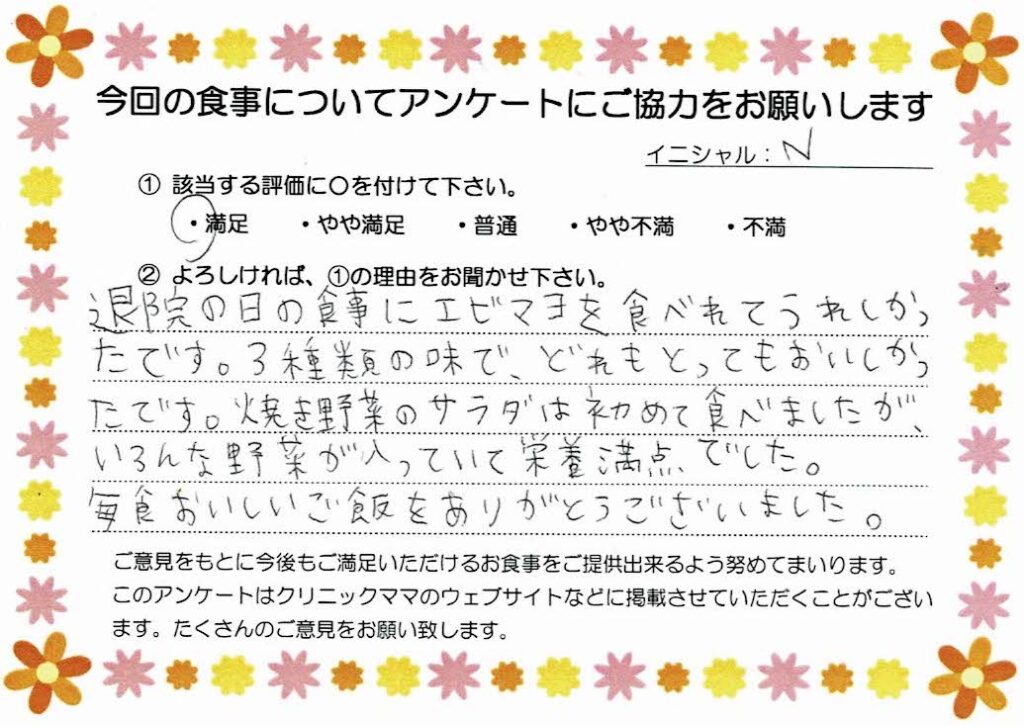 今回の食事についてアンケートにご協力をお願いします
イニシャル：N
① 該当する評価に○を付けて下さい。
・満足 ・やや満足 ・普通 ・やや不満 ・不満
② よろしければ、①の理由をお聞かせ下さい。
退院の日の食事にエビマヨを食べれてうれしかっ
たです。3種類の味で、どれもとってもおいしかっ
たです。焼き野菜のサラダは初めて食べましたが、
いろんな野菜が入っていて栄養満点でした。
毎食おいしいご飯をありがとうございました。
ご意見をもとに今後もご満足いただけるお食事をご提供出来るよう努めてまいります。
このアンケートはクリニックママのウェブサイトなどに掲載させていただくことがござい
ます。たくさんのご意見をお願い致します。